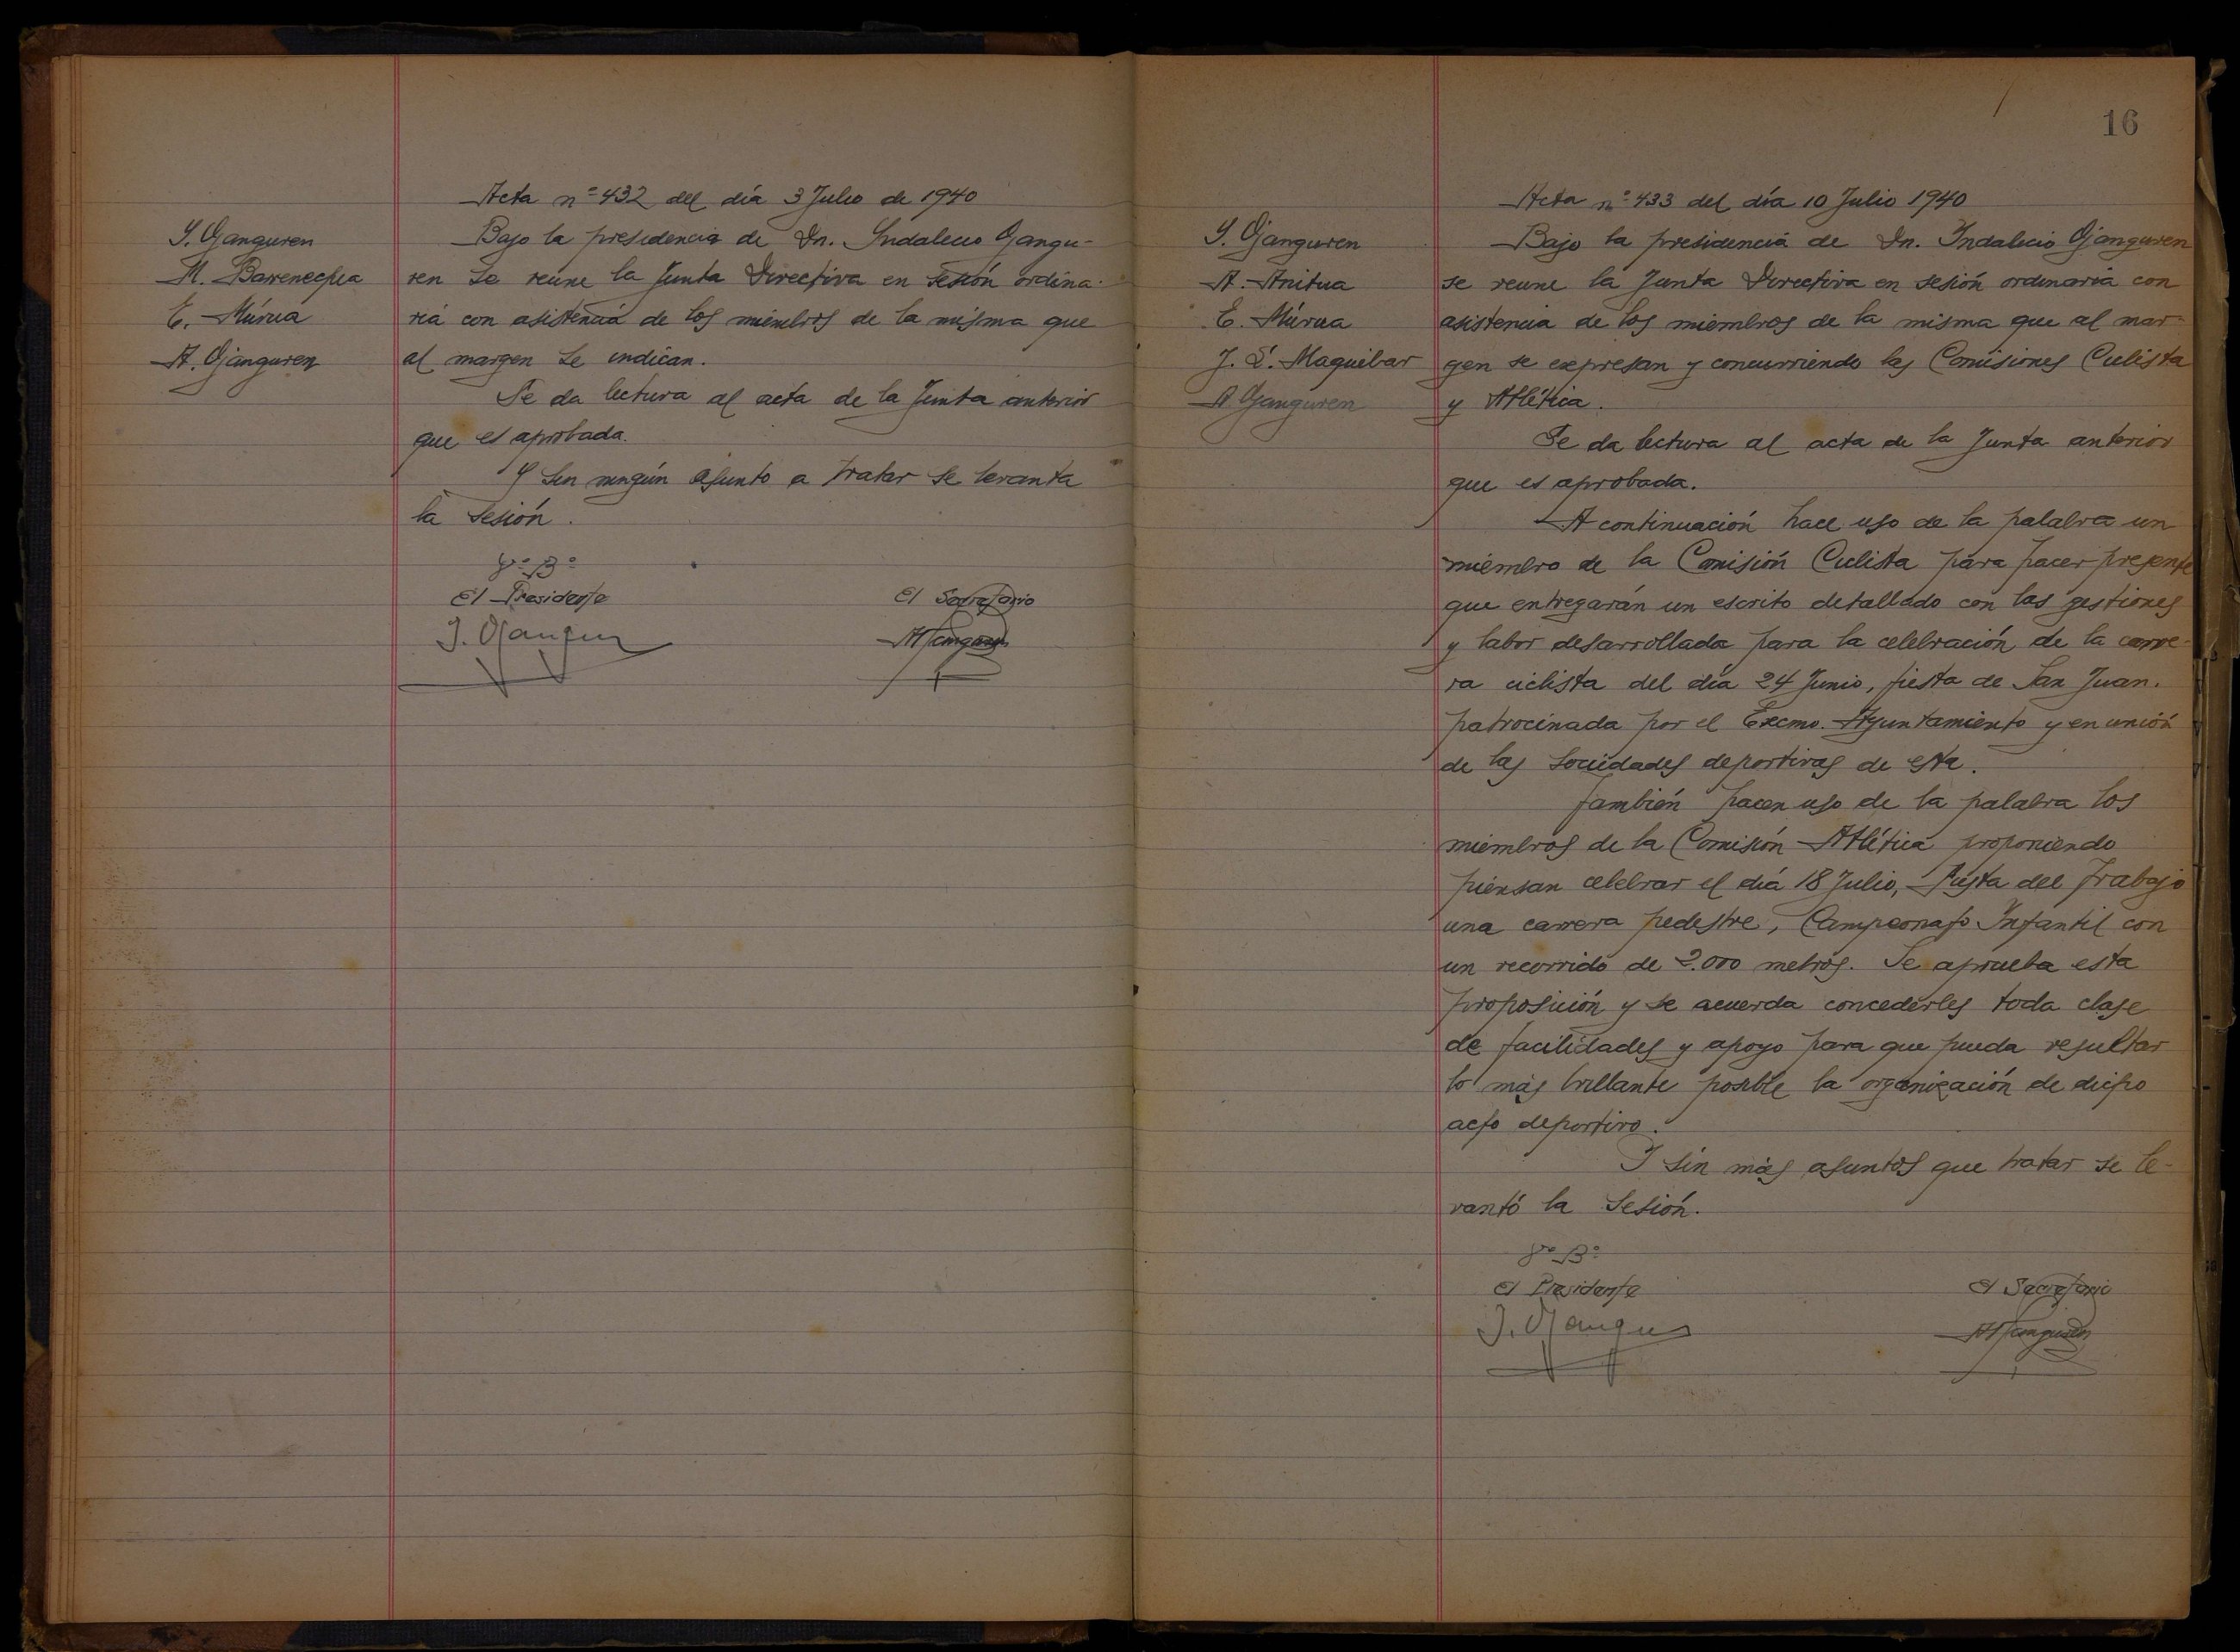 Acta nº 432 del día 3 Julio de 1940
I. Ojanguren
M. Barrenechea
E. Múrua
A. Ojanguren
Bajo la presidencia de Dn. Indalecio Ojangu-
ren se reune la Junta Directiva en sesión ordina-
ria con asistencia de los miembros de la misma que
al margen se indican.
Se da lectura al acta de la Junta anterior
que es aprobada.
Y sin ningún asunto a tratar se levanta
la sesión.
Vº Bº
El Presidente
El Secretario
I. Ojanguren
A. Ojanguren
16
Acta nº 433 del día 10 Julio 1940
I. Ojanguren
A. Anitua
E. Múrua
J. L. Maguibar
A. Ojanguren
Bajo la presidencia de Dn. Indalecio Ojanguren
se reune la Junta Directiva en sesión ordinaria con
asistencia de los miembros de la misma que al mar-
gen se expresan y concurriendo las Comisiones Ciclista
y Atlética.
Se da lectura al acta de la Junta anterior
que es aprobada.
A continuación hace uso de la palabra un
miembro de la Comisión Ciclista para hacer presente
que entregarán un escrito detallado con las gestiones
y labor desarrollada para la celebración de la carre-
ra ciclista del día 24 Junio, fiesta de San Juan.
patrocinada por el Excmo. Ayuntamiento y en unión
de las Sociedades deportivas de esta.
También hacen uso de la palabra los
miembros de la Comisión Atlética proponiendo
piensan celebrar el día 18 Julio, Fiesta del Trabajo
una carrera pedestre, Campeonato Infantil con
un recorrido de 2.000 metros. Se aprueba esta
proposición y se acuerda concederles toda clase
de facilidades y apoyo para que pueda resultar
lo más brillante posible la organización de dicho
acto deportivo.
Y sin más asuntos que tratar se le-
vantó la Sesión.
Vº Bº
El Presidente
El Secretario
I. Ojanguren
A. Ojanguren